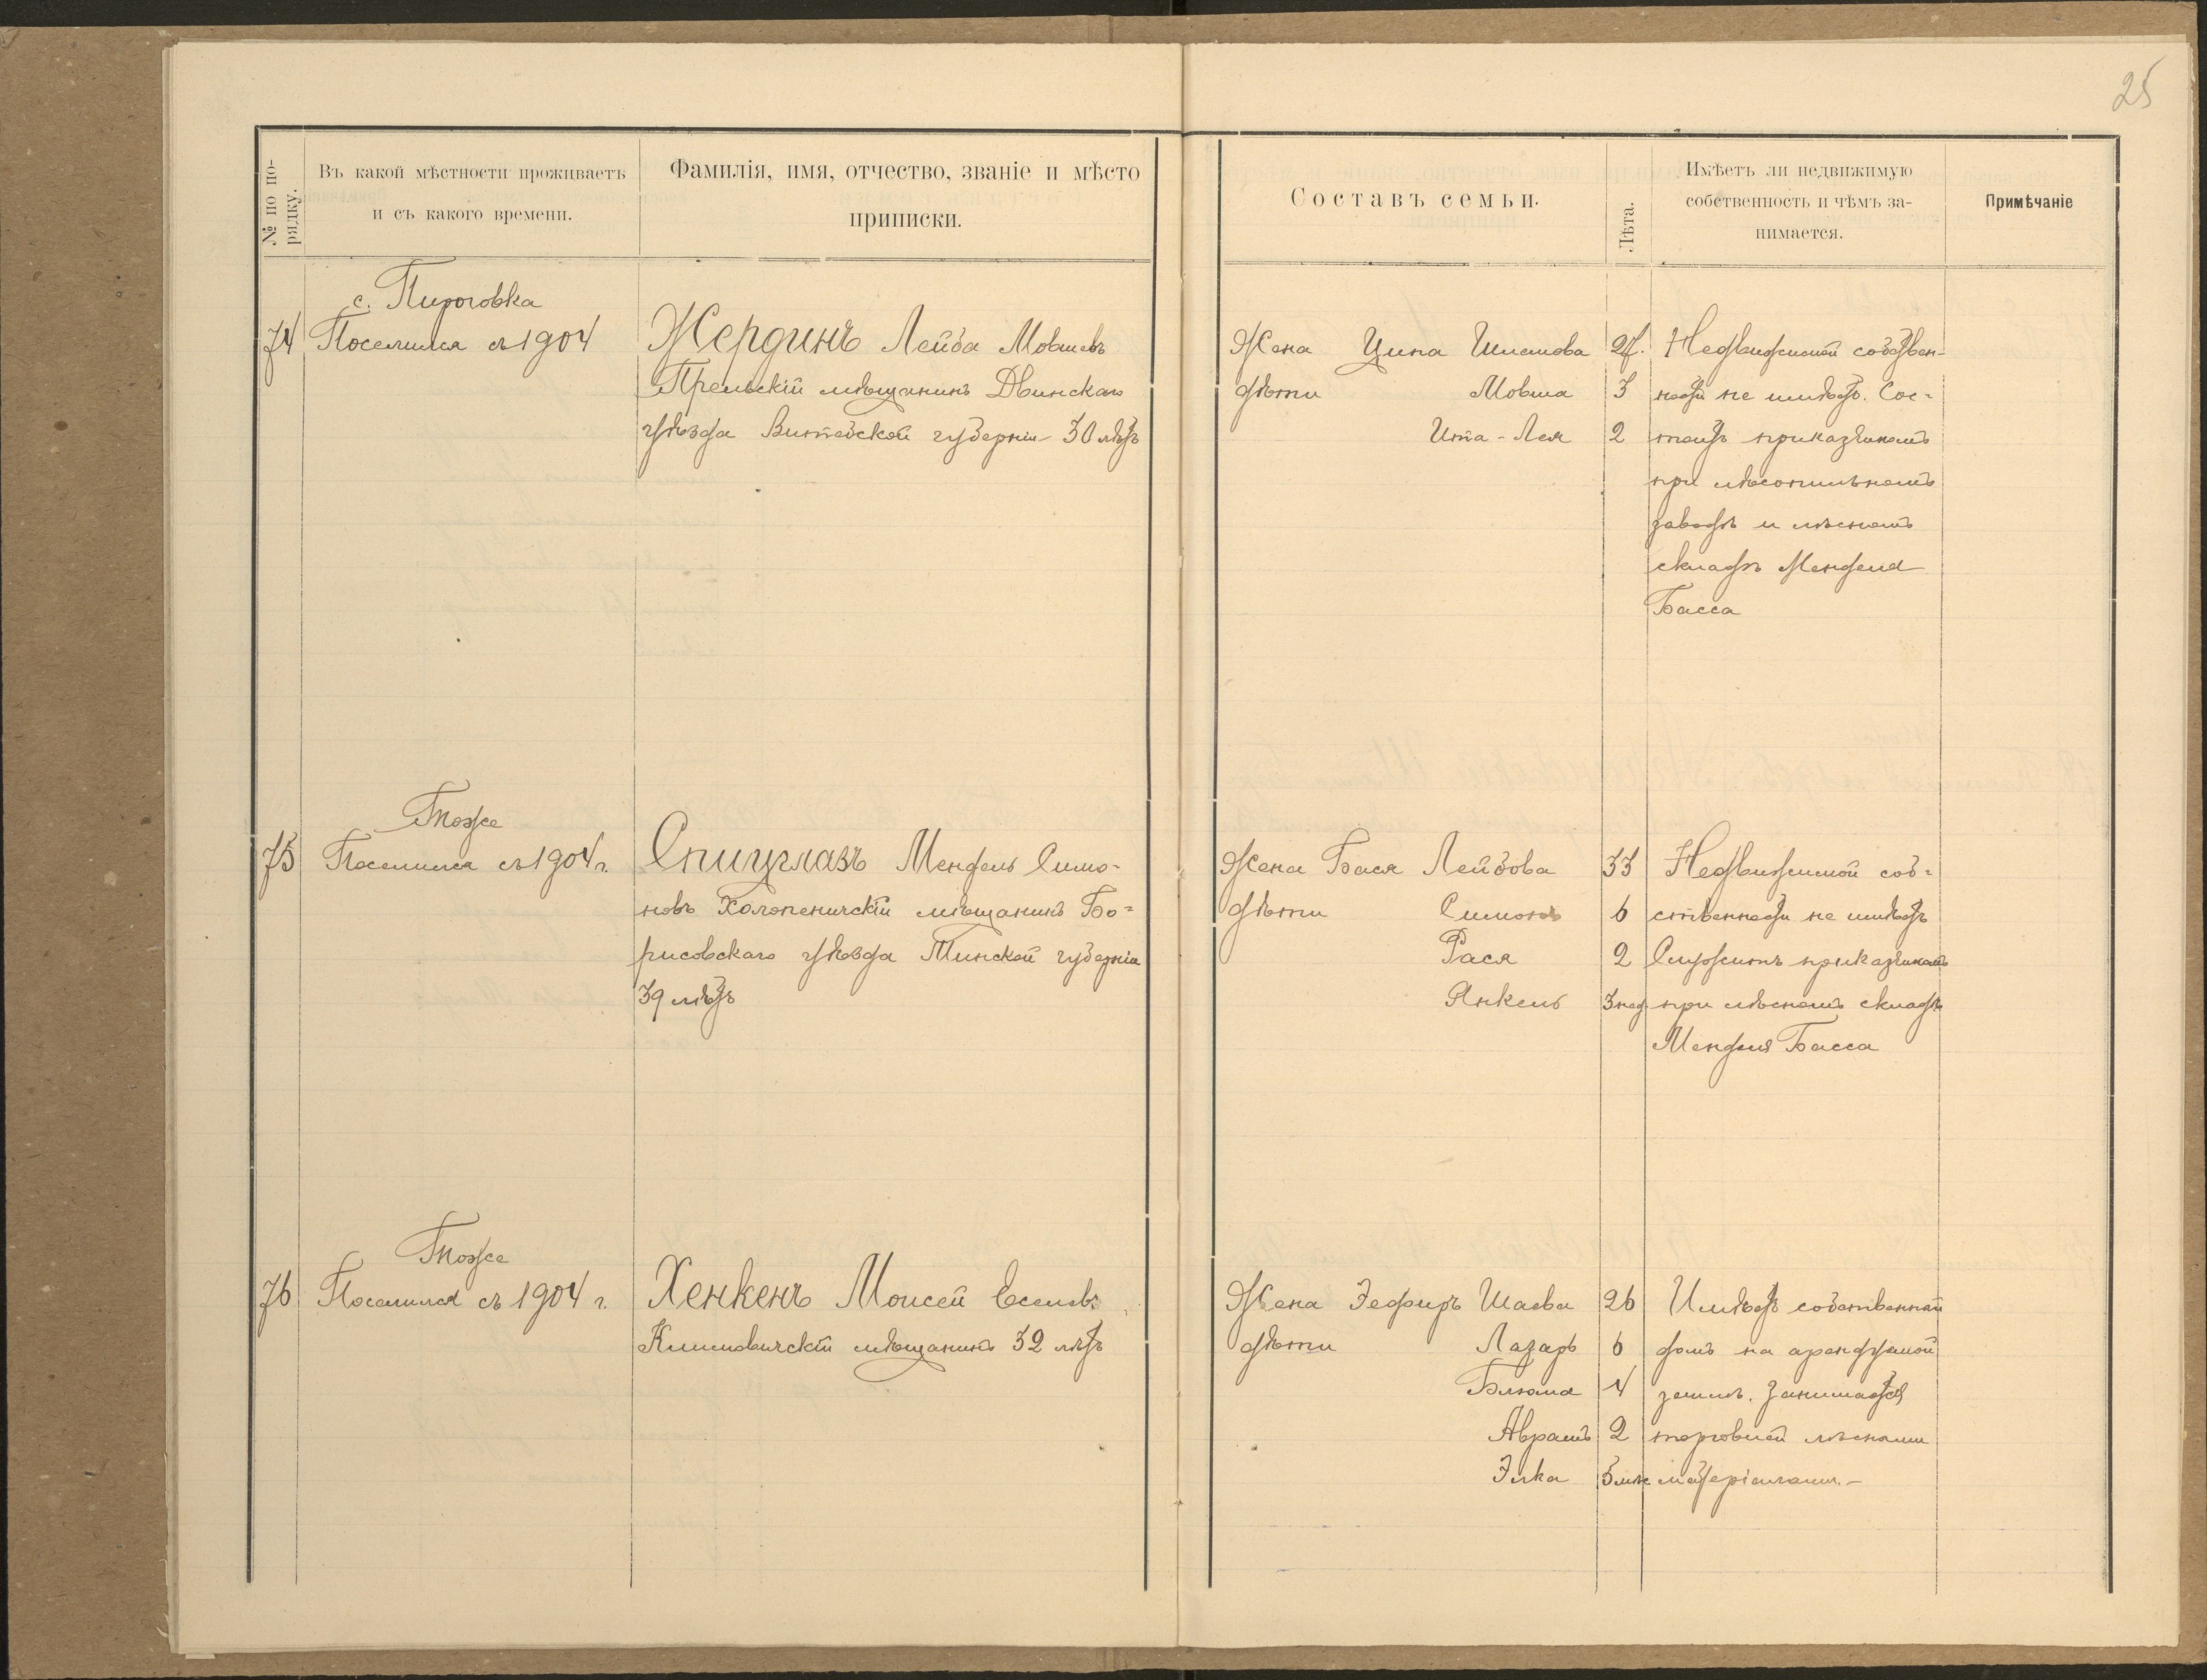 25
№ по по-
рядку.
Въ какой мѣстности проживаетъ
и съ какого времени.
Фамилія, имя, отчество, званіе и мѣсто
приписки.
Составъ семьи.
Лѣта.
Имѣетъ ли недвижимую
собственность и чѣмъ за-
нимается.
Примѣчаніе
с. Пироговка
74 Поселился съ 1904
Жердинъ Лейба Мовшевъ
Прельскій мѣщанинъ Двинскаго
уѣзда Витебской губерніи 30 лѣтъ
Жена Ципа Шлемова
дѣти Мовша 3
Ита-Лея 2
Недвижимой собствен-
ности не имѣетъ. Сос-
тоитъ приказчикомъ
при лѣсопильномъ
заводѣ и лѣсномъ
складѣ Менделя
Басса
Тоже
75 Поселился съ 1904 г.
Спицглазъ Мендель Симо-
новъ Холопеничскій мѣщанинъ Бо-
рисовскаго уѣзда Минской губерніи
39 лѣтъ
Жена Бася Лейбова 33
дѣти Симонъ 6
Рася 2
Янкель 3 нед
Недвижимой соб-
ственности не имѣетъ
Служитъ приказчикомъ
при лѣсномъ складѣ
Менделя Басса
Тоже
76 Поселился съ 1904 г.
Хенкенъ Моисей Еселевъ
Климовичскій мѣщанинъ 32 лѣтъ
Жена Зефиръ Шаева 26
дѣти Лазарь 6
Блюма 4
Абрамъ 2
Элка
Имѣетъ собственный
домъ на арендуемой
землѣ. Занимается
торговлей лѣсными
матеріалами.-